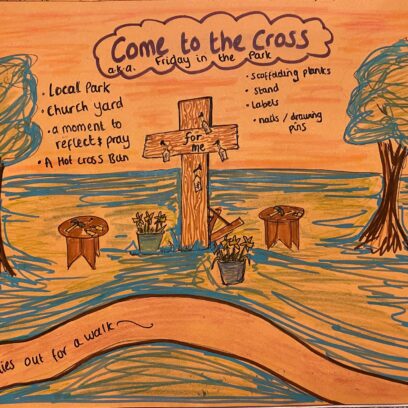 Come to the Cross
a.k.a. Friday in the Park
• Local Park
• Church yard
• a moment to
reflect & pray
• A Hot Cross Bun
• Scaffolding planks
• Stand
• Labels
• nails / drawing
pins
for
me
out for a walk